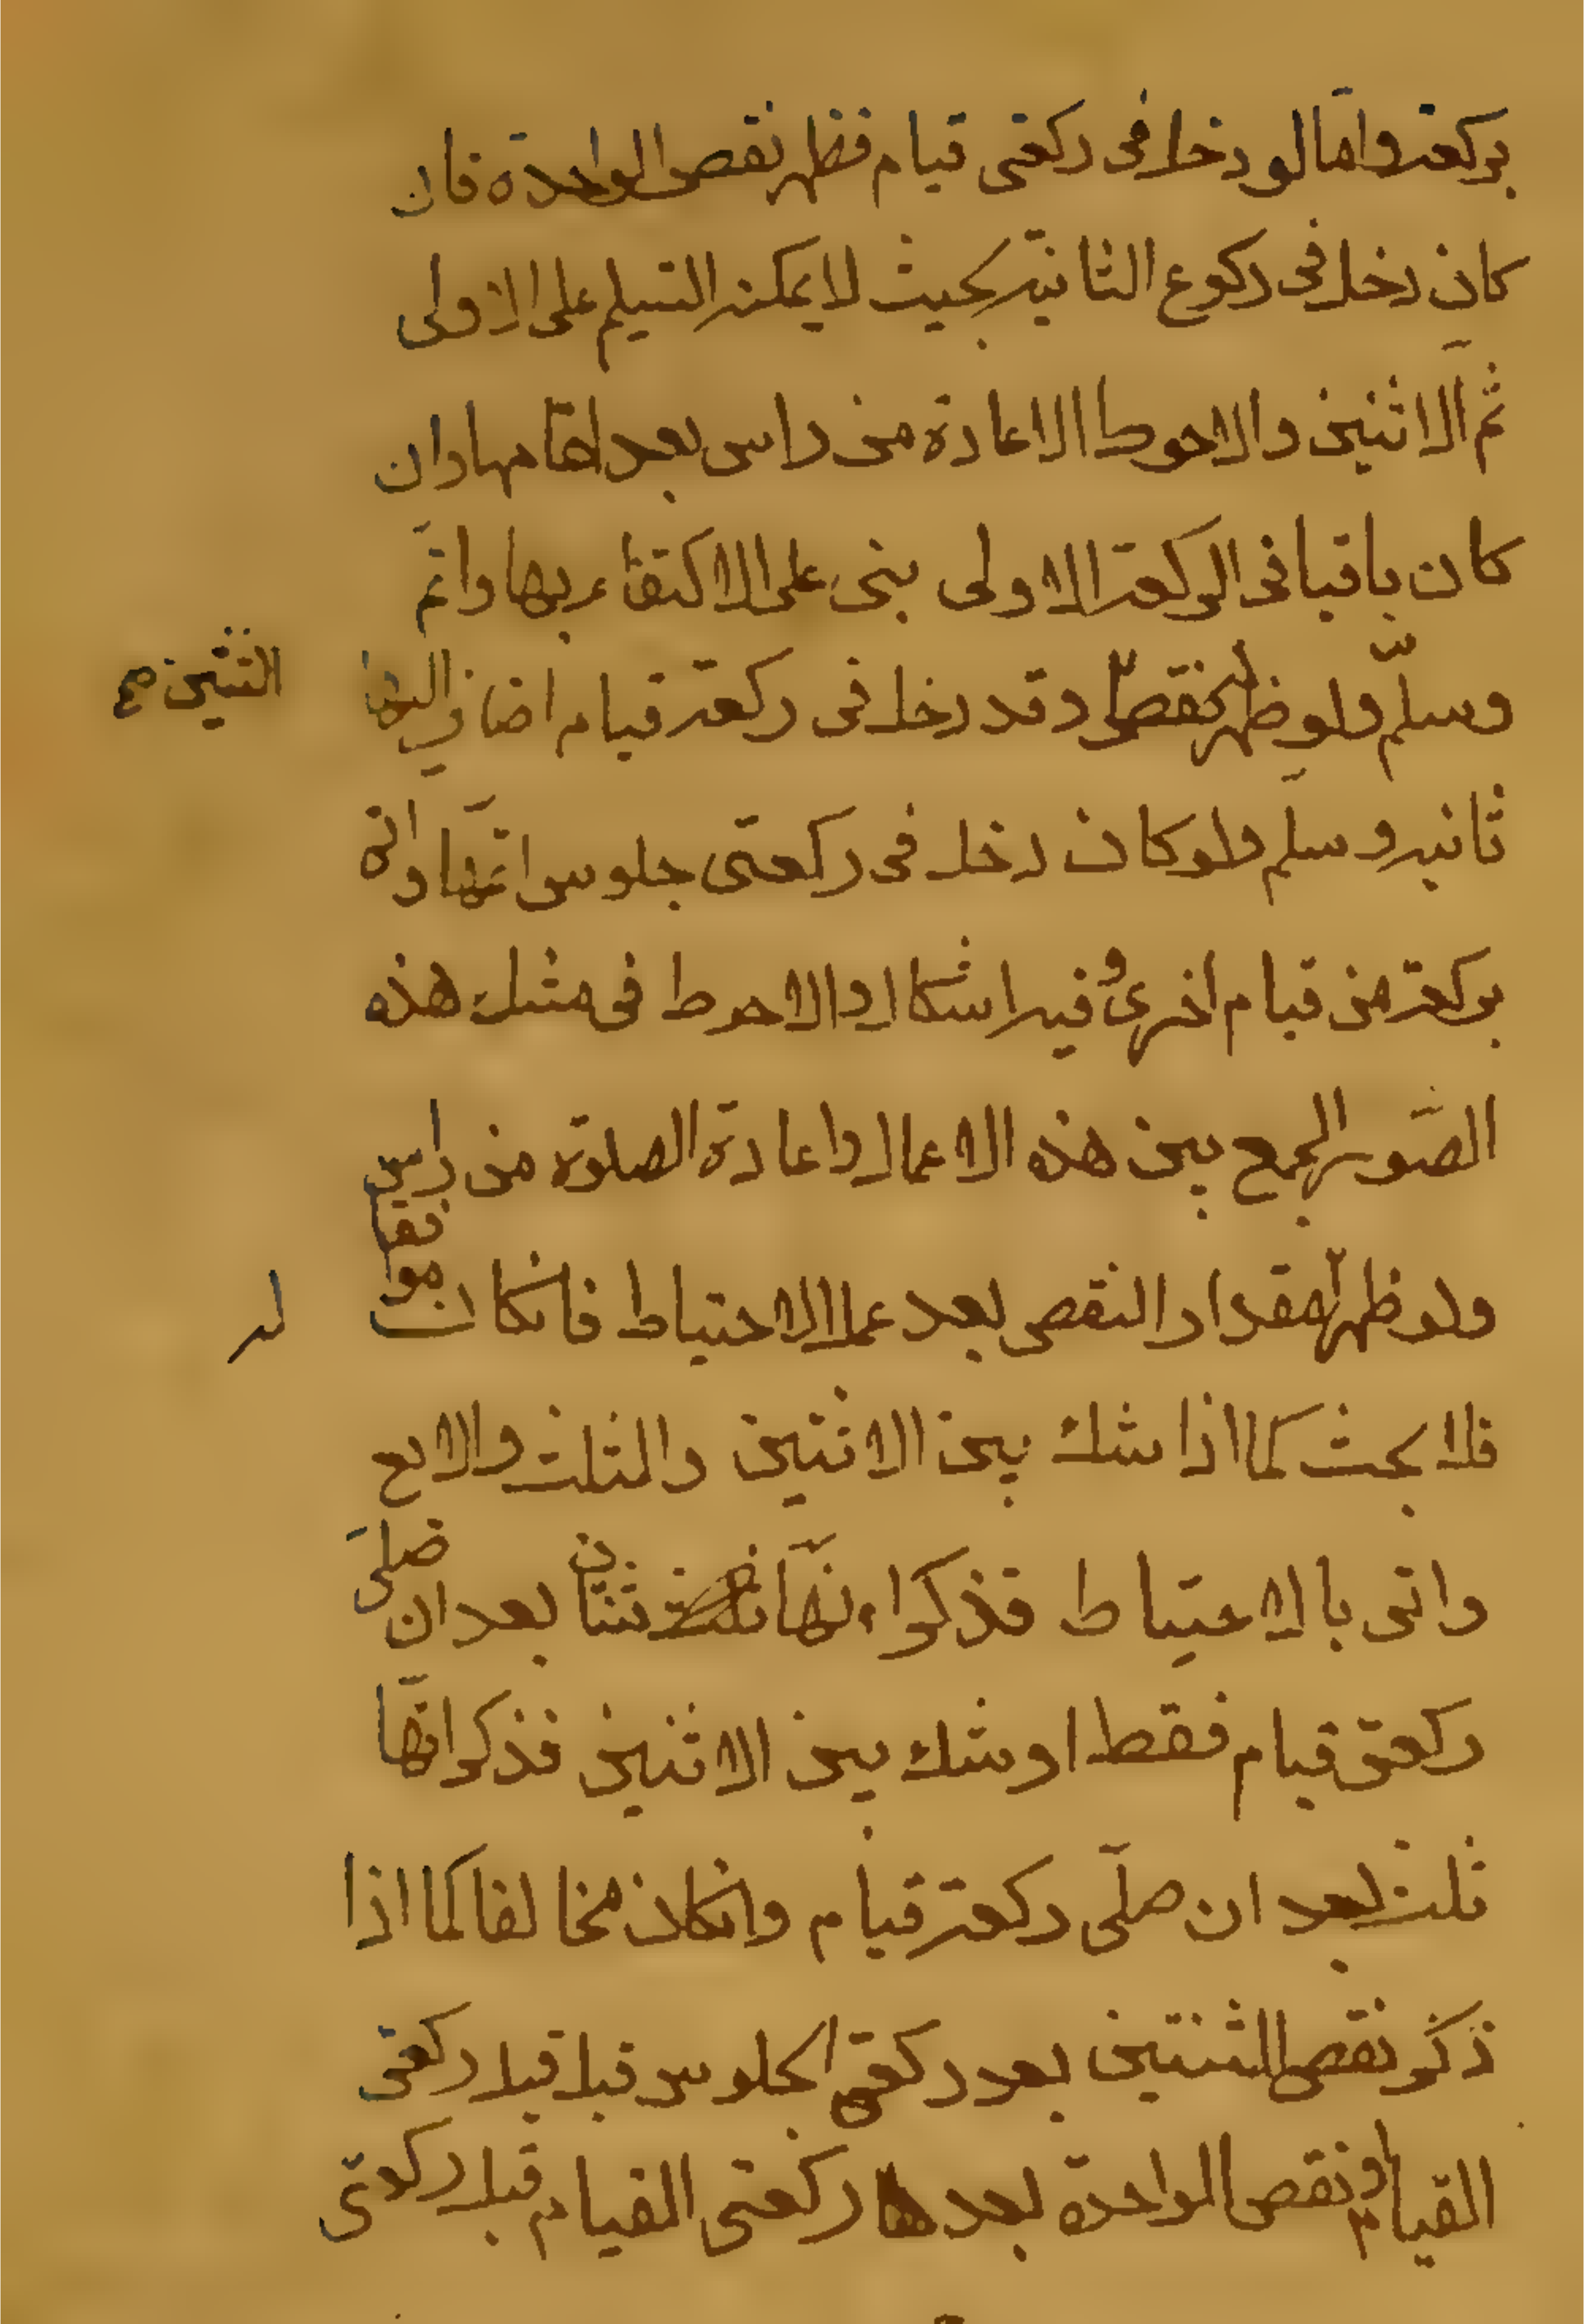 بركعة واما لو دخل فى ركعتى قيام فظهر نقص الواحدة فان
كان دخل فى ركوع الثانية بحيث لا يمكنه التسليم على الاولى
ثم الاثنين والاحوط الاعادة من راس بعد اتمامها وان
كان باقيا فى الركعة الاولى بنى على الاكتفاء بها واتم
وسلّم ولو ظهر نقص وقد دخل فى ركعة قيام اضاف اليها
الثنتين صح
ثانيه وسلم ولو كان دخل فى ركعتى جلوس اتمها واتى
بركعة من قيام اخرى وفيه اشكال والاحوط فى مثل هذه
الصّور الجمع بين هذه الاعمال واعادة الصلوة من راس
ولو ظهر له مقدار النقص بعد عمل الاحتياط فانكان موافقا
له
فلا بحث كما اذا شك بين الاثنين والثلث والاربع
واتى بالاحتياط فذكر انّها ثنتان بعد ان صلى
ركعتى قيام فقط او شك بين الاثنين فذكر انّها
ثلث بعد ان صلّى ركعة قيام وانكان مخالفا كما اذا
ذكر نقص الثنتين بعد ركعتى الجلوس قبل قبل ركعتى
القيام و نقص الواحدة بعدها ركعتى القيام قبل ركعتى